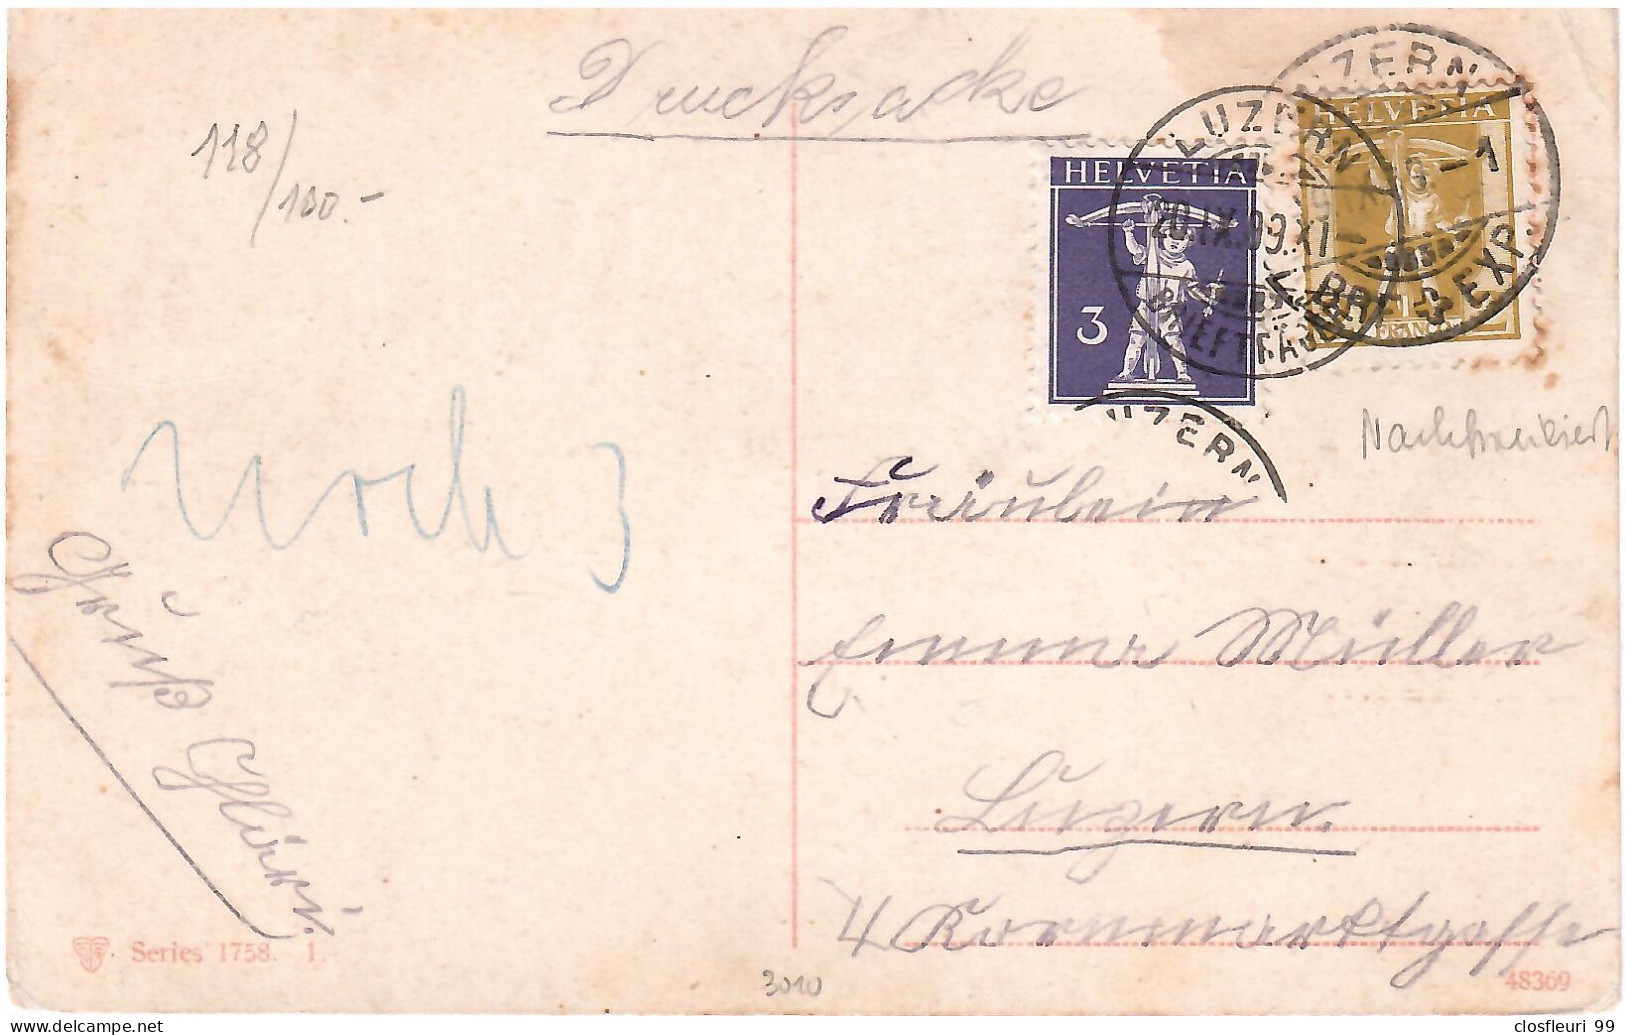 Drucksache
118/100.-
HELVETIA
3
HELVETIA
FRANCO
LUZERN
20.IX.09.XI-
BRIEFTRÄGER
LUZERN
-1
BRF. EXP.
LUZERN
Nachfrankiert
Noch 3
Fräulein
Emma Müller
Luzern.
4 Kornmarktgasse
Gruß
Series 1758. 1.
3010
48369
closfleuri 99
www.delcampe.net